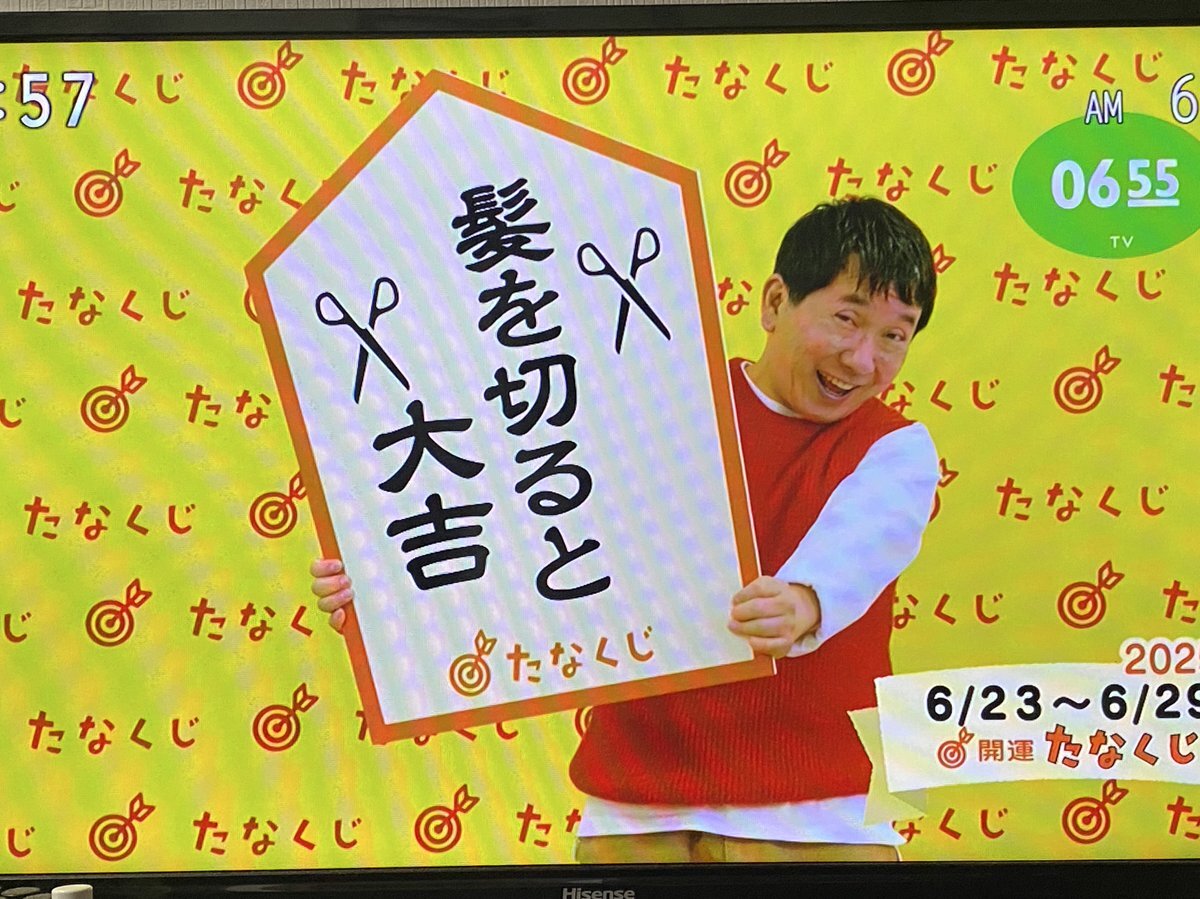 :57
AM 6
0655
TV
髪を切ると
大吉
たなくじ
6/23〜6/29
開運 たなくじ
たなくじ たなくじ たなくじ
たなくじ
たなくじ
たなくじ
たなくじ
Hisense